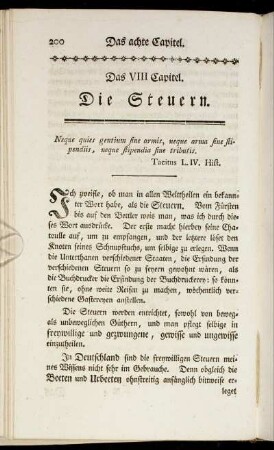 200 Das achte Capitel.
Das VIII Capitel.
Die Steuern.
Neque quies gentium sine armis, neque arma sine sti-
pendiis, neque stipendia sine tributis.
Tacitus L. IV. Hist.
Ich zweifle, ob man in allen Welttheilen ein bekann-
ter Wort habe, als die Steuern. Vom Fürsten
bis auf den Bettler weis man, was ich durch dieses
Wort ausdrücke. Der erste macht hierbey seine Cha-
toulle auf, um zu empfangen, und der letztere löset den
Knoten seines Schnupftuchs, um selbige zu erlegen. Wenn
die Unterthanen verschiedener Staaten, die Erfindung der
verschiedenen Steuern so zu feyern gewohnt wären, als
die Buchdrucker die Erfindung der Buchdruckerey: so könn-
ten sie, ohne weite Reisen zu machen, wöchentlich ver-
schiedene Gastereyen anstellen.
Die Steuern werden entrichtet, sowohl von beweg-
als unbeweglichen Güthern, und man pflegt selbige in
freywillige und gezwungene, gewisse und ungewisse
einzutheilen.
In Deutschland sind die freywilligen Steuern mei-
nes Wissens nicht sehr im Gebrauche. Denn obgleich die
Beeten und Urbeeten ohnstreitig anfänglich bittweise er-
leget